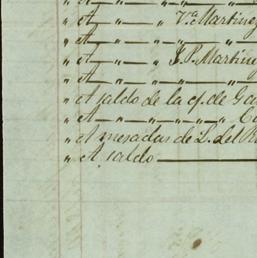 " A — " — " —
" A — " — " V.ª Martinez
" A — " — " —
" A — " — " J. P. Martin
" A — " — " — " —
" A saldo de la c/. de Ga
" A — " — " — " — "
" A mesadas de L. del R
" A saldo —